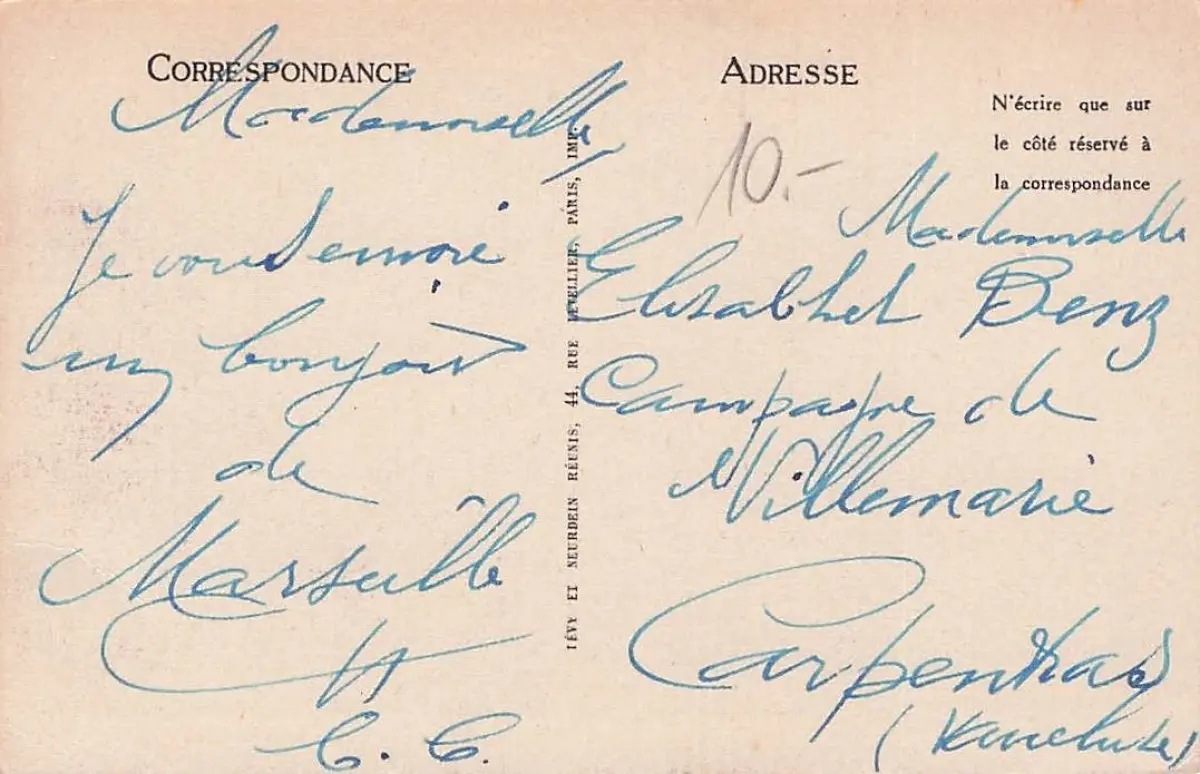 CORRESPONDANCE
Mademoiselle
Je vous envoie
un bonjour
de
Marseille
C. C.
LÉVY ET NEURDEIN RÉUNIS, 44, RUE LETELLIER, PARIS, IMP.
ADRESSE
N'écrire que sur
le côté réservé à
la correspondance
10.-
Mademoiselle
Elisabthet Benz
Campagne de
Villemarie
Carpentras
(Vaucluse)